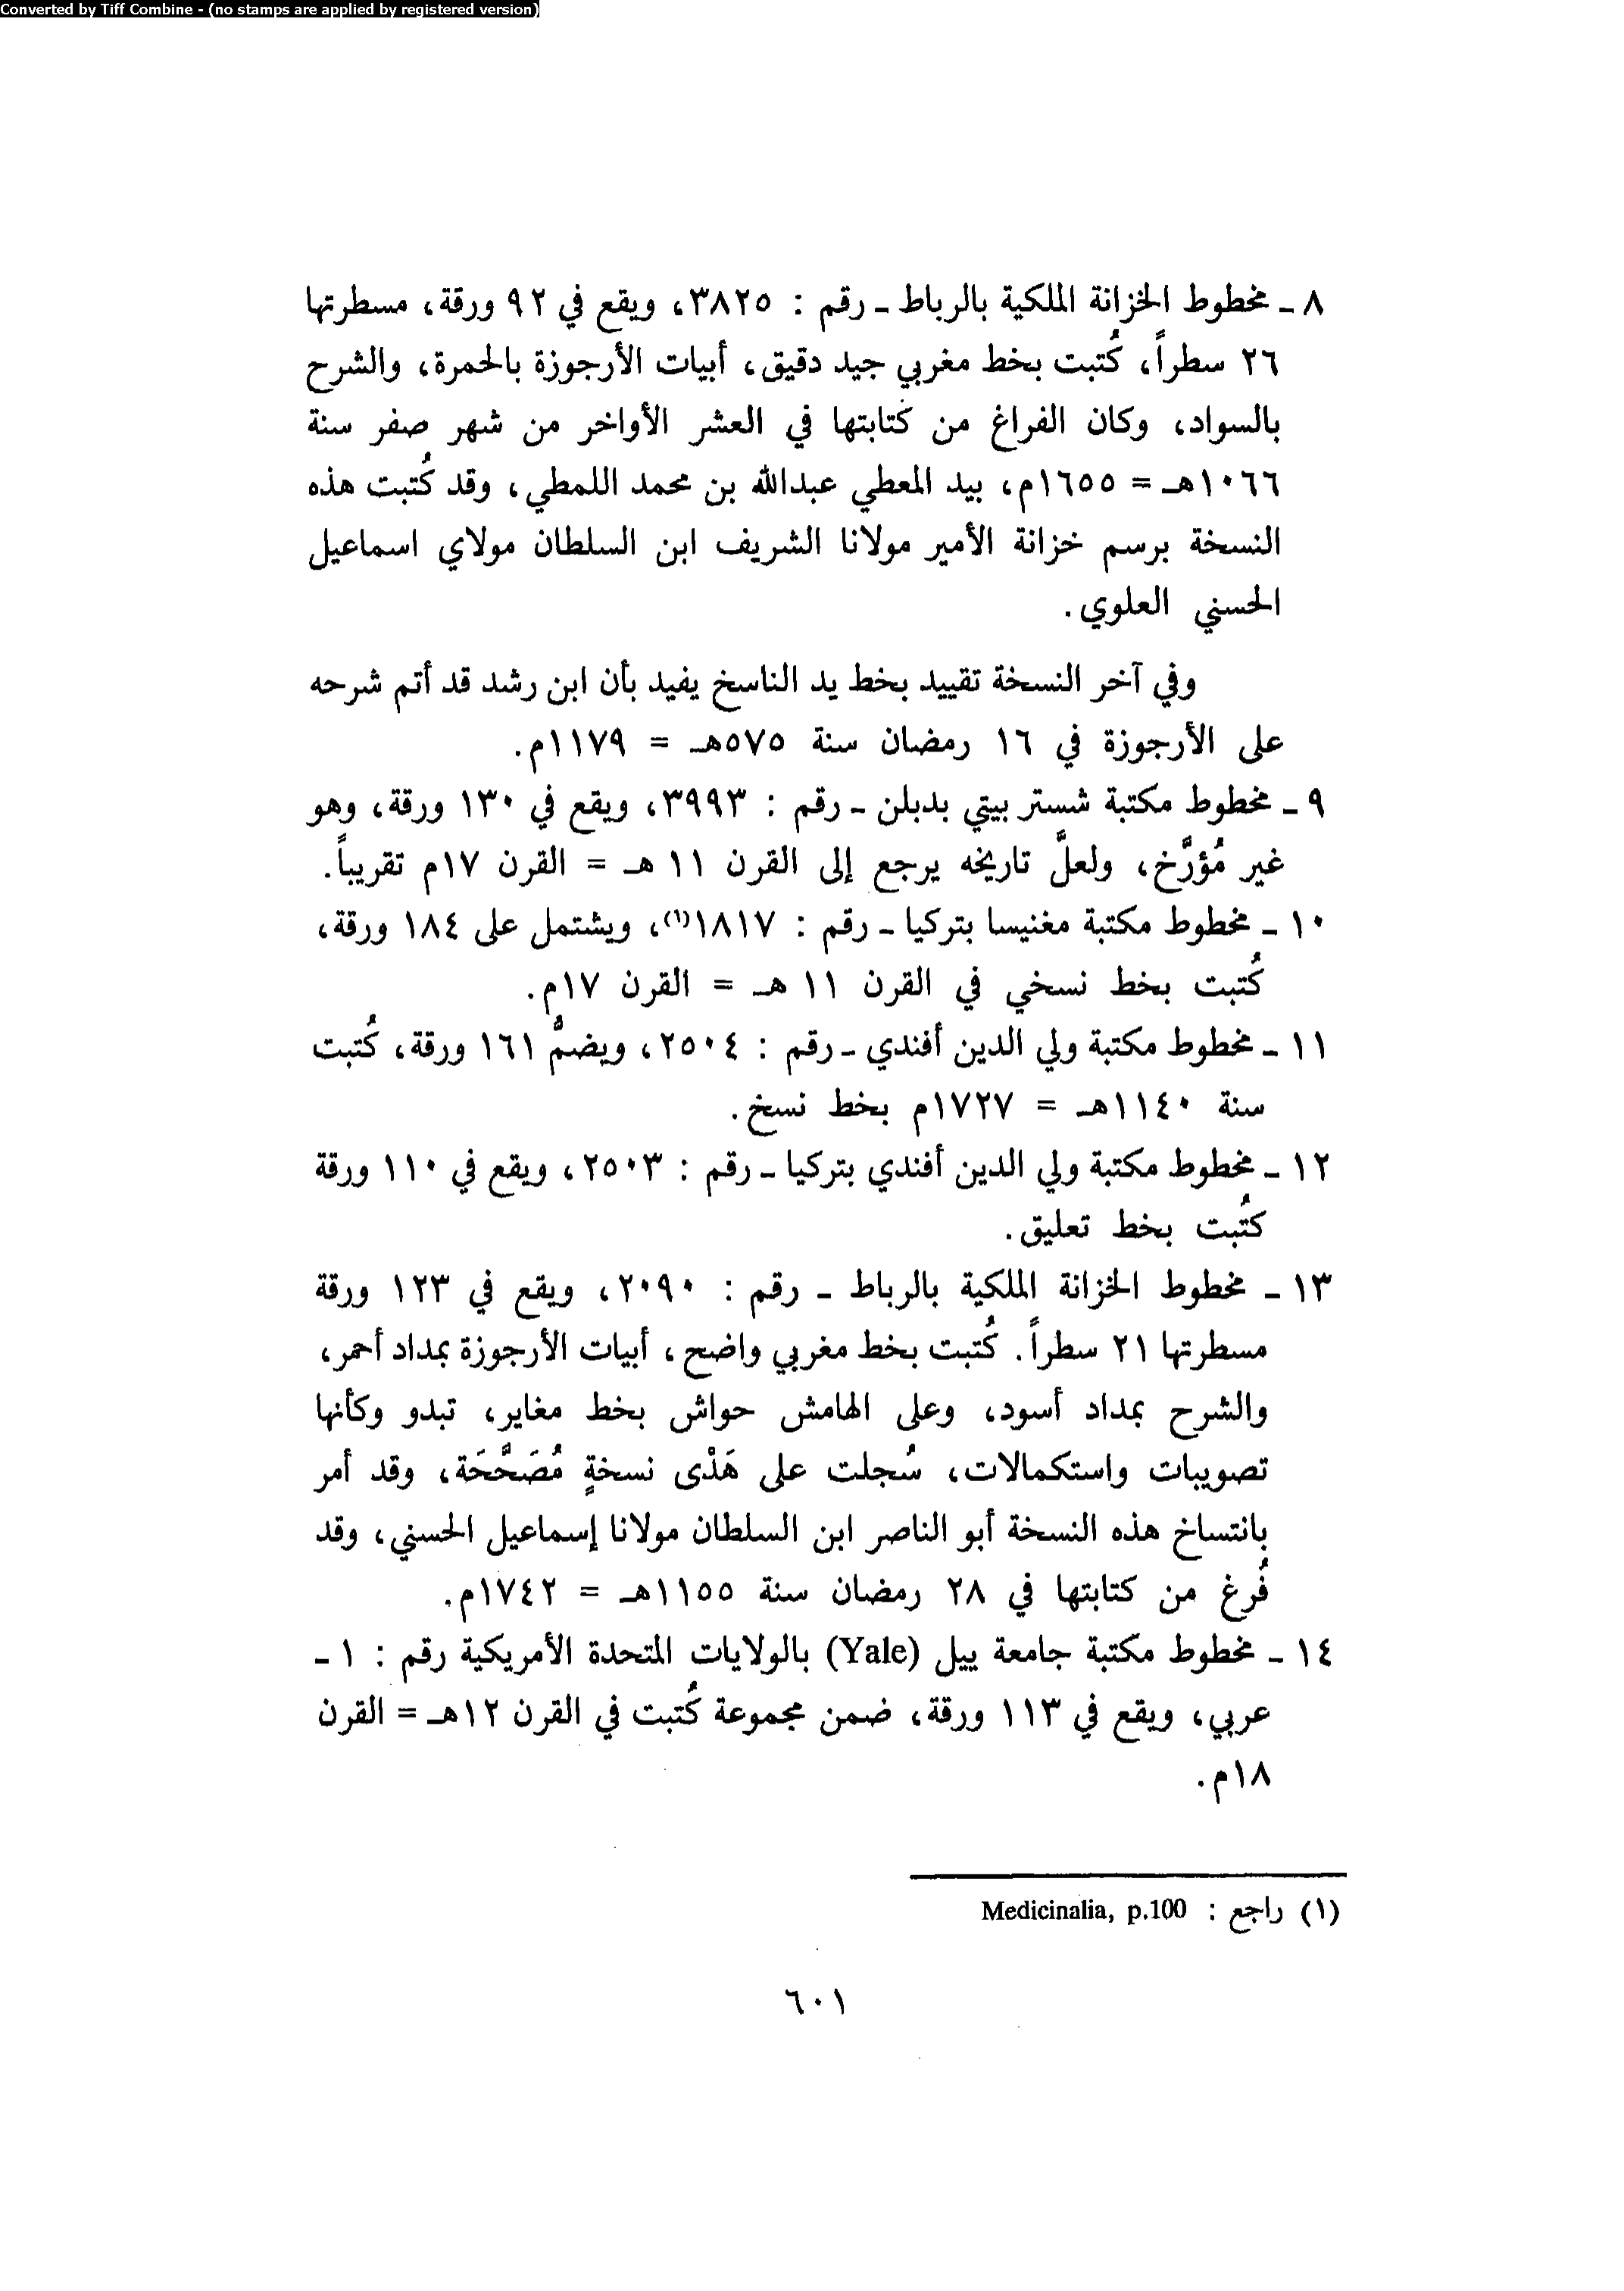 Converted by Tiff Combine - (no stamps are applied by registered version)
٨ ـ مخطوط الخزانة الملكية بالرباط ـ رقم : ٣٨٢٥، ويقع في ٩٢ ورقة، مسطرتها
٢٦ سطراً، كُتبت بخط مغربي جيد دقيق، أبيات الأرجوزة بالحمرة، والشرح
بالسواد، وكان الفراغ من كتابتها في العشر الأواخر من شهر صفر سنة
١٠٦٦هـ = ١٦٥٥م، بيد المعطي عبدالله بن محمد اللمطي، وقد كُتبت هذه
النسخة برسم خزانة الأمير مولانا الشريف ابن السلطان مولاي اسماعيل
الحسني العلوي.
وفي آخر النسخة تقييد بخط يد الناسخ يفيد بأن ابن رشد قد أتم شرحه
على الأرجوزة في ١٦ رمضان سنة ٥٧٥هـ = ١١٧٩م.
٩ ـ مخطوط مكتبة شستر بيتي بدبلن ـ رقم : ٣٩٩٣، ويقع في ١٣٠ ورقة، وهو
غير مُؤرَّخ، ولعلَّ تاريخه يرجع إلى القرن ١١ هـ = القرن ١٧م تقريباً.
١٠ ـ مخطوط مكتبة مغنيسا بتركيا ـ رقم : ١٨١٧(١)، ويشتمل على ١٨٤ ورقة،
كُتبت بخط نسخي في القرن ١١ هـ = القرن ١٧م.
١١ ـ مخطوط مكتبة ولي الدين أفندي ـ رقم : ٢٥٠٤، ويضمُّ ١٦١ ورقة، كُتبت
سنة ١١٤٠هـ = ١٧٢٧م بخط نسخ.
١٢ ـ مخطوط مكتبة ولي الدين أفندي بتركيا ـ رقم : ٢٥٠٣، ويقع في ١١٠ ورقة
كتُبت بخط تعليق.
١٣ ـ مخطوط الخزانة الملكية بالرباط ـ رقم : ٢٠٩٠، ويقع في ١٢٣ ورقة
مسطرتها ٢١ سطراً. كُتبت بخط مغربي واضح، أبيات الأرجوزة بمداد أحمر،
والشرح بمداد أسود، وعلى الهامش حواش بخط مغاير، تبدو وكأنها
تصويبات واستكمالات، سُجلت على هَدْى نسخةٍ مُصَحَّحَة، وقد أمر
بانتساخ هذه النسخة أبو الناصر ابن السلطان مولانا إسماعيل الحسني، وقد
فُرغ من كتابتها في ٢٨ رمضان سنة ١١٥٥هـ = ١٧٤٢م.
١٤ ـ مخطوط مكتبة جامعة ييل (Yale) بالولايات المتحدة الأمريكية رقم : ١ ـ
عربي، ويقع في ١١٣ ورقة، ضمن مجموعة كُتبت في القرن ١٢هـ = القرن
١٨م.
(١) راجع : Medicinalia, p.100
٦٠١